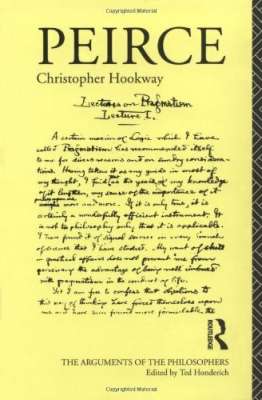 PEIRCE
Christopher Hookway
Lectures on Pragmatism
Lecture I.
A certain maxim of Logic which I have
called Pragmatism has recommended itself
to me for divers reasons and on sundry considera-
tions. Having taken it as my guide in most of
my thought, I find as the years of my knowledge
of it lengthen, my sense of the importance of it
presses upon me more and more. If it is only true, it is
certainly a wonderfully efficient instrument. It
is not to philosophy only that it is applicable.
I have found it of signal service in every branch
of science that I have studied. My want of skill
in practical affairs does not prevent me from
perceiving the advantage of being well imbued
with pragmatism in the conduct of life.
Yet I am free to confess that objections to
this way of thinking have forced themselves upon
me and have been found more formidable the
ROUTLEDGE
THE ARGUMENTS OF THE PHILOSOPHERS
Edited by Ted Honderich